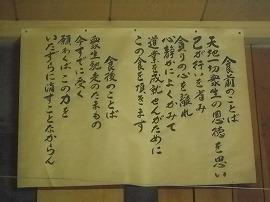 食前のことば
天地一切衆生の恩徳を思い
己が行いを省み
貪りの心を離れ
心静かによくかみて
道業を成就せんがために
この食を頂きます
食後のことば
衆生馳走のたまもの
今すでに受く
願わくはこの力を
いたずらに消すことなからん